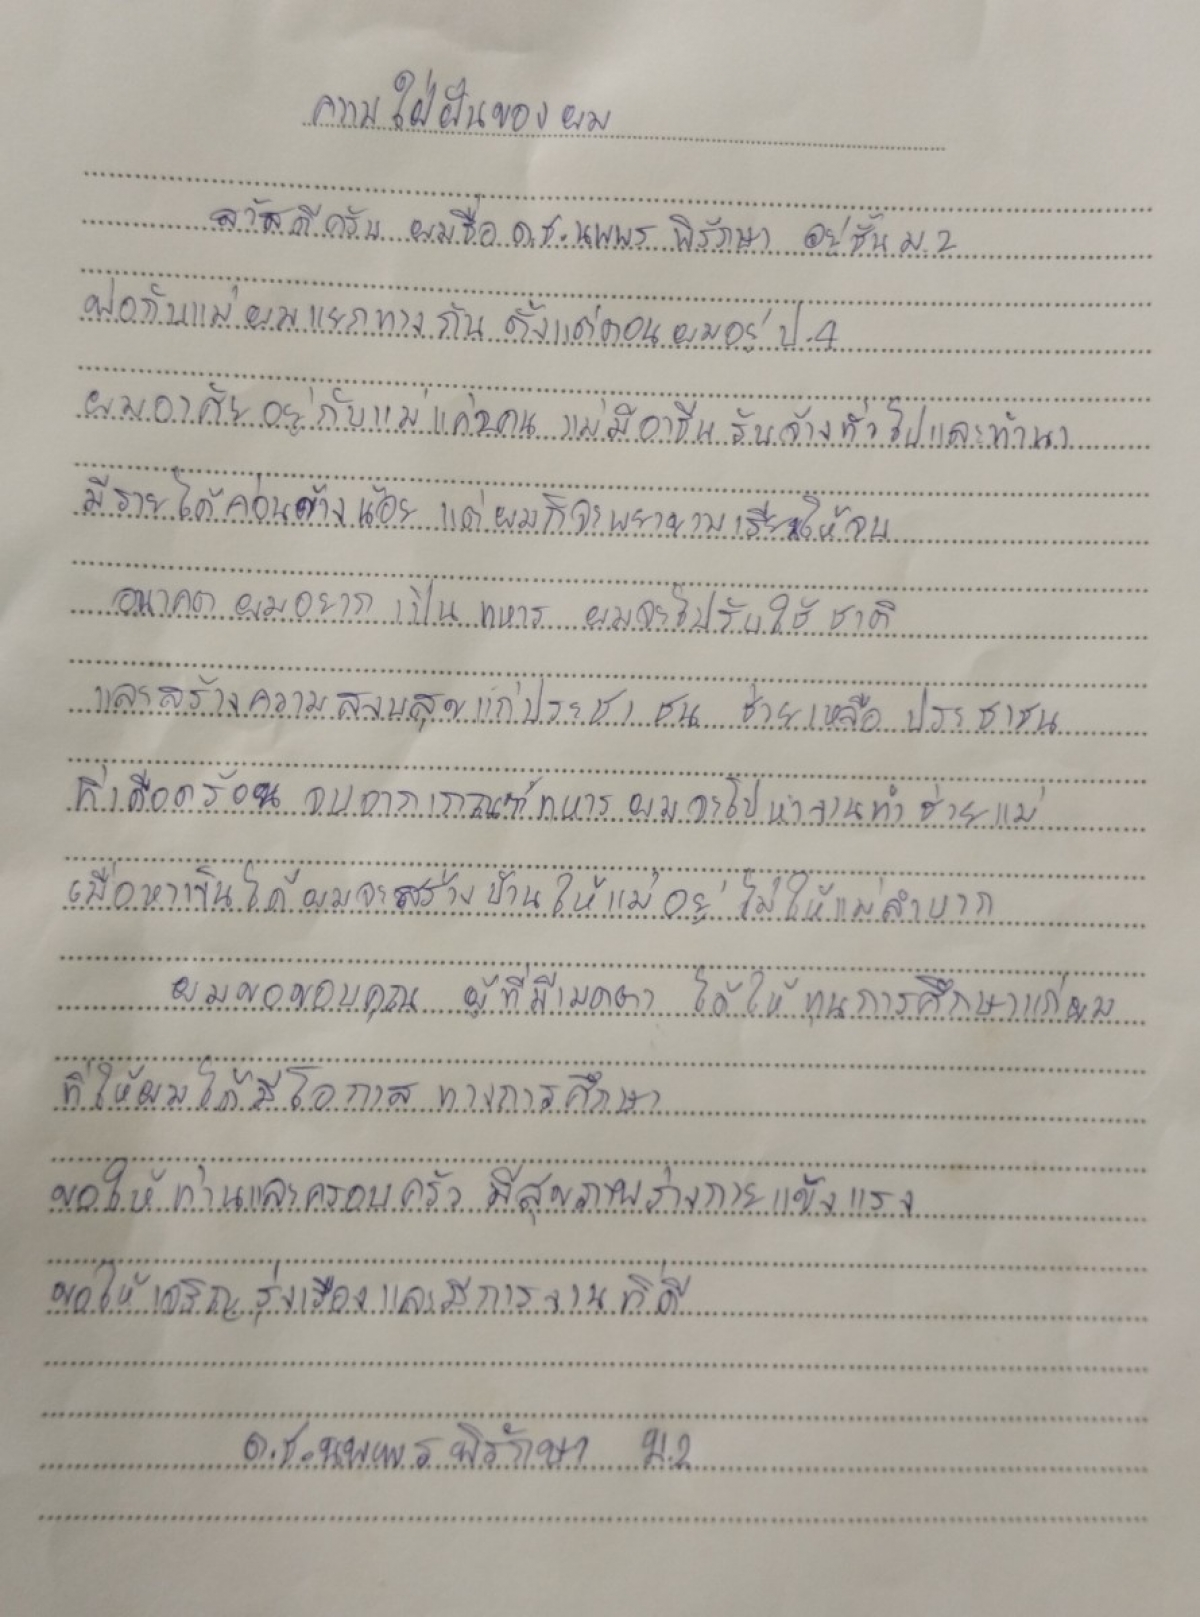 ความใฝ่ฝันของผม
สวัสดีครับ ผมชื่อ ด.ช.นพพร พิรักษา อยู่ชั้น ม.2
พ่อกับแม่ผมแยกทางกัน ตั้งแต่ตอนผมอยู่ ป.4
ผมอาศัยอยู่กับแม่แค่2คน แม่มีอาชีพ รับจ้างทั่วไปและทำนา
มีรายได้ค่อนข้างน้อย แต่ผมก็จะพยายามเรียนให้จบ
อนาคต ผมอยาก เป็น ทหาร ผมจะไปรับใช้ ชาติ
และสร้างความสงบสุขแก่ประชาชน ช่วยเหลือ ประชาชน
ที่เดือดร้อน จบจากเกณฑ์ทหาร ผมจะไปหางานทำ ช่วยแม่
เมื่อหาเงินได้ ผมจะสร้างบ้านให้แม่อยู่ ไม่ให้แม่ลำบาก
ผมขอขอบคุณ ผู้ที่มีเมตตา ได้ให้ ทุนการศึกษาแก่ผม
ที่ให้ผมได้มีโอกาส ทางการศึกษา
ขอให้ ท่านและครอบครัว มีสุขภาพร่างกายแข็งแรง
ขอให้ เจริญ รุ่งเรือง และมีการงาน ที่ดี
ด.ช.นพพร พิรักษา ม.2